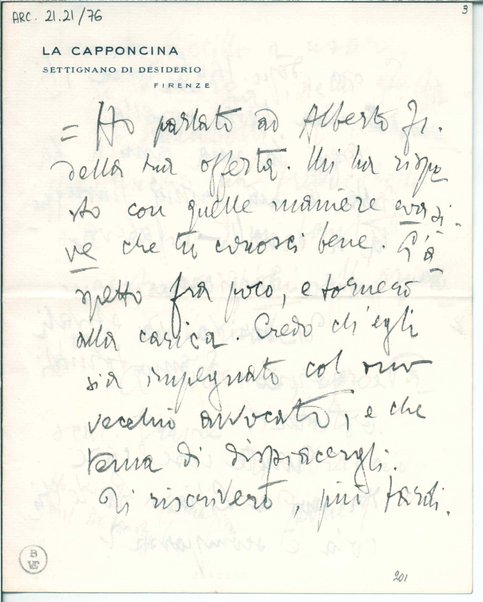 ARC. 21.21/76
3
LA CAPPONCINA
SETTIGNANO DI DESIDERIO
FIRENZE
= Ho parlato ad Alberto Fr.
della tua offerta. Mi ha rispo
sto con quelle maniere evasi-
ve che tu conosci bene. L'a
spetto fra poco, e tornerò
alla carica. Credo ch'egli
sia impegnato col suo
vecchio avvocato, e che
tema di dispiacergli.
Ti riscriverò, più tardi.
201